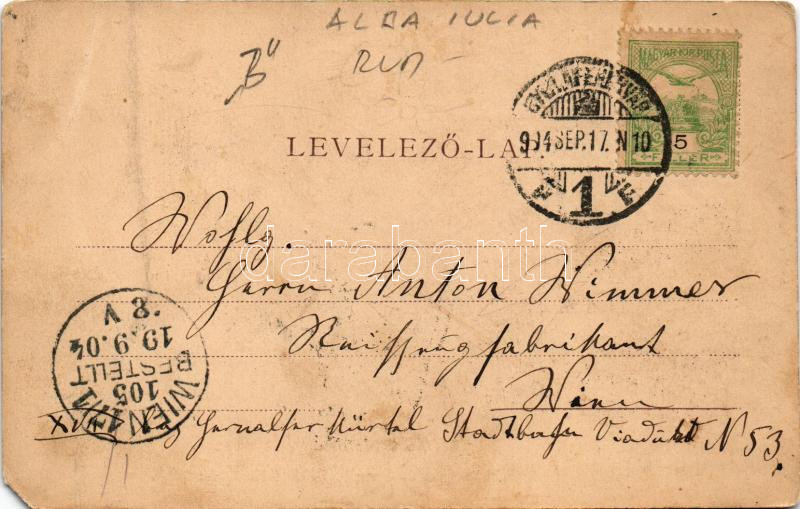 ALBA IULIA
"B"
RUM
MAGYAR KIR. POSTA
5
FILLER
GYULAFEHÉRVÁR
904 SEP. 17. N 10
1
LEVELEZŐ-LAP.
Wohlg.
Herrn Anton Wimmer
Reisszeugfabrikant
Wien
Hernalser Gürtel Stadtbahn Viadukt N 53.
WIEN 17/1
105
BESTELLT
19.9.04
8. V
darabanth